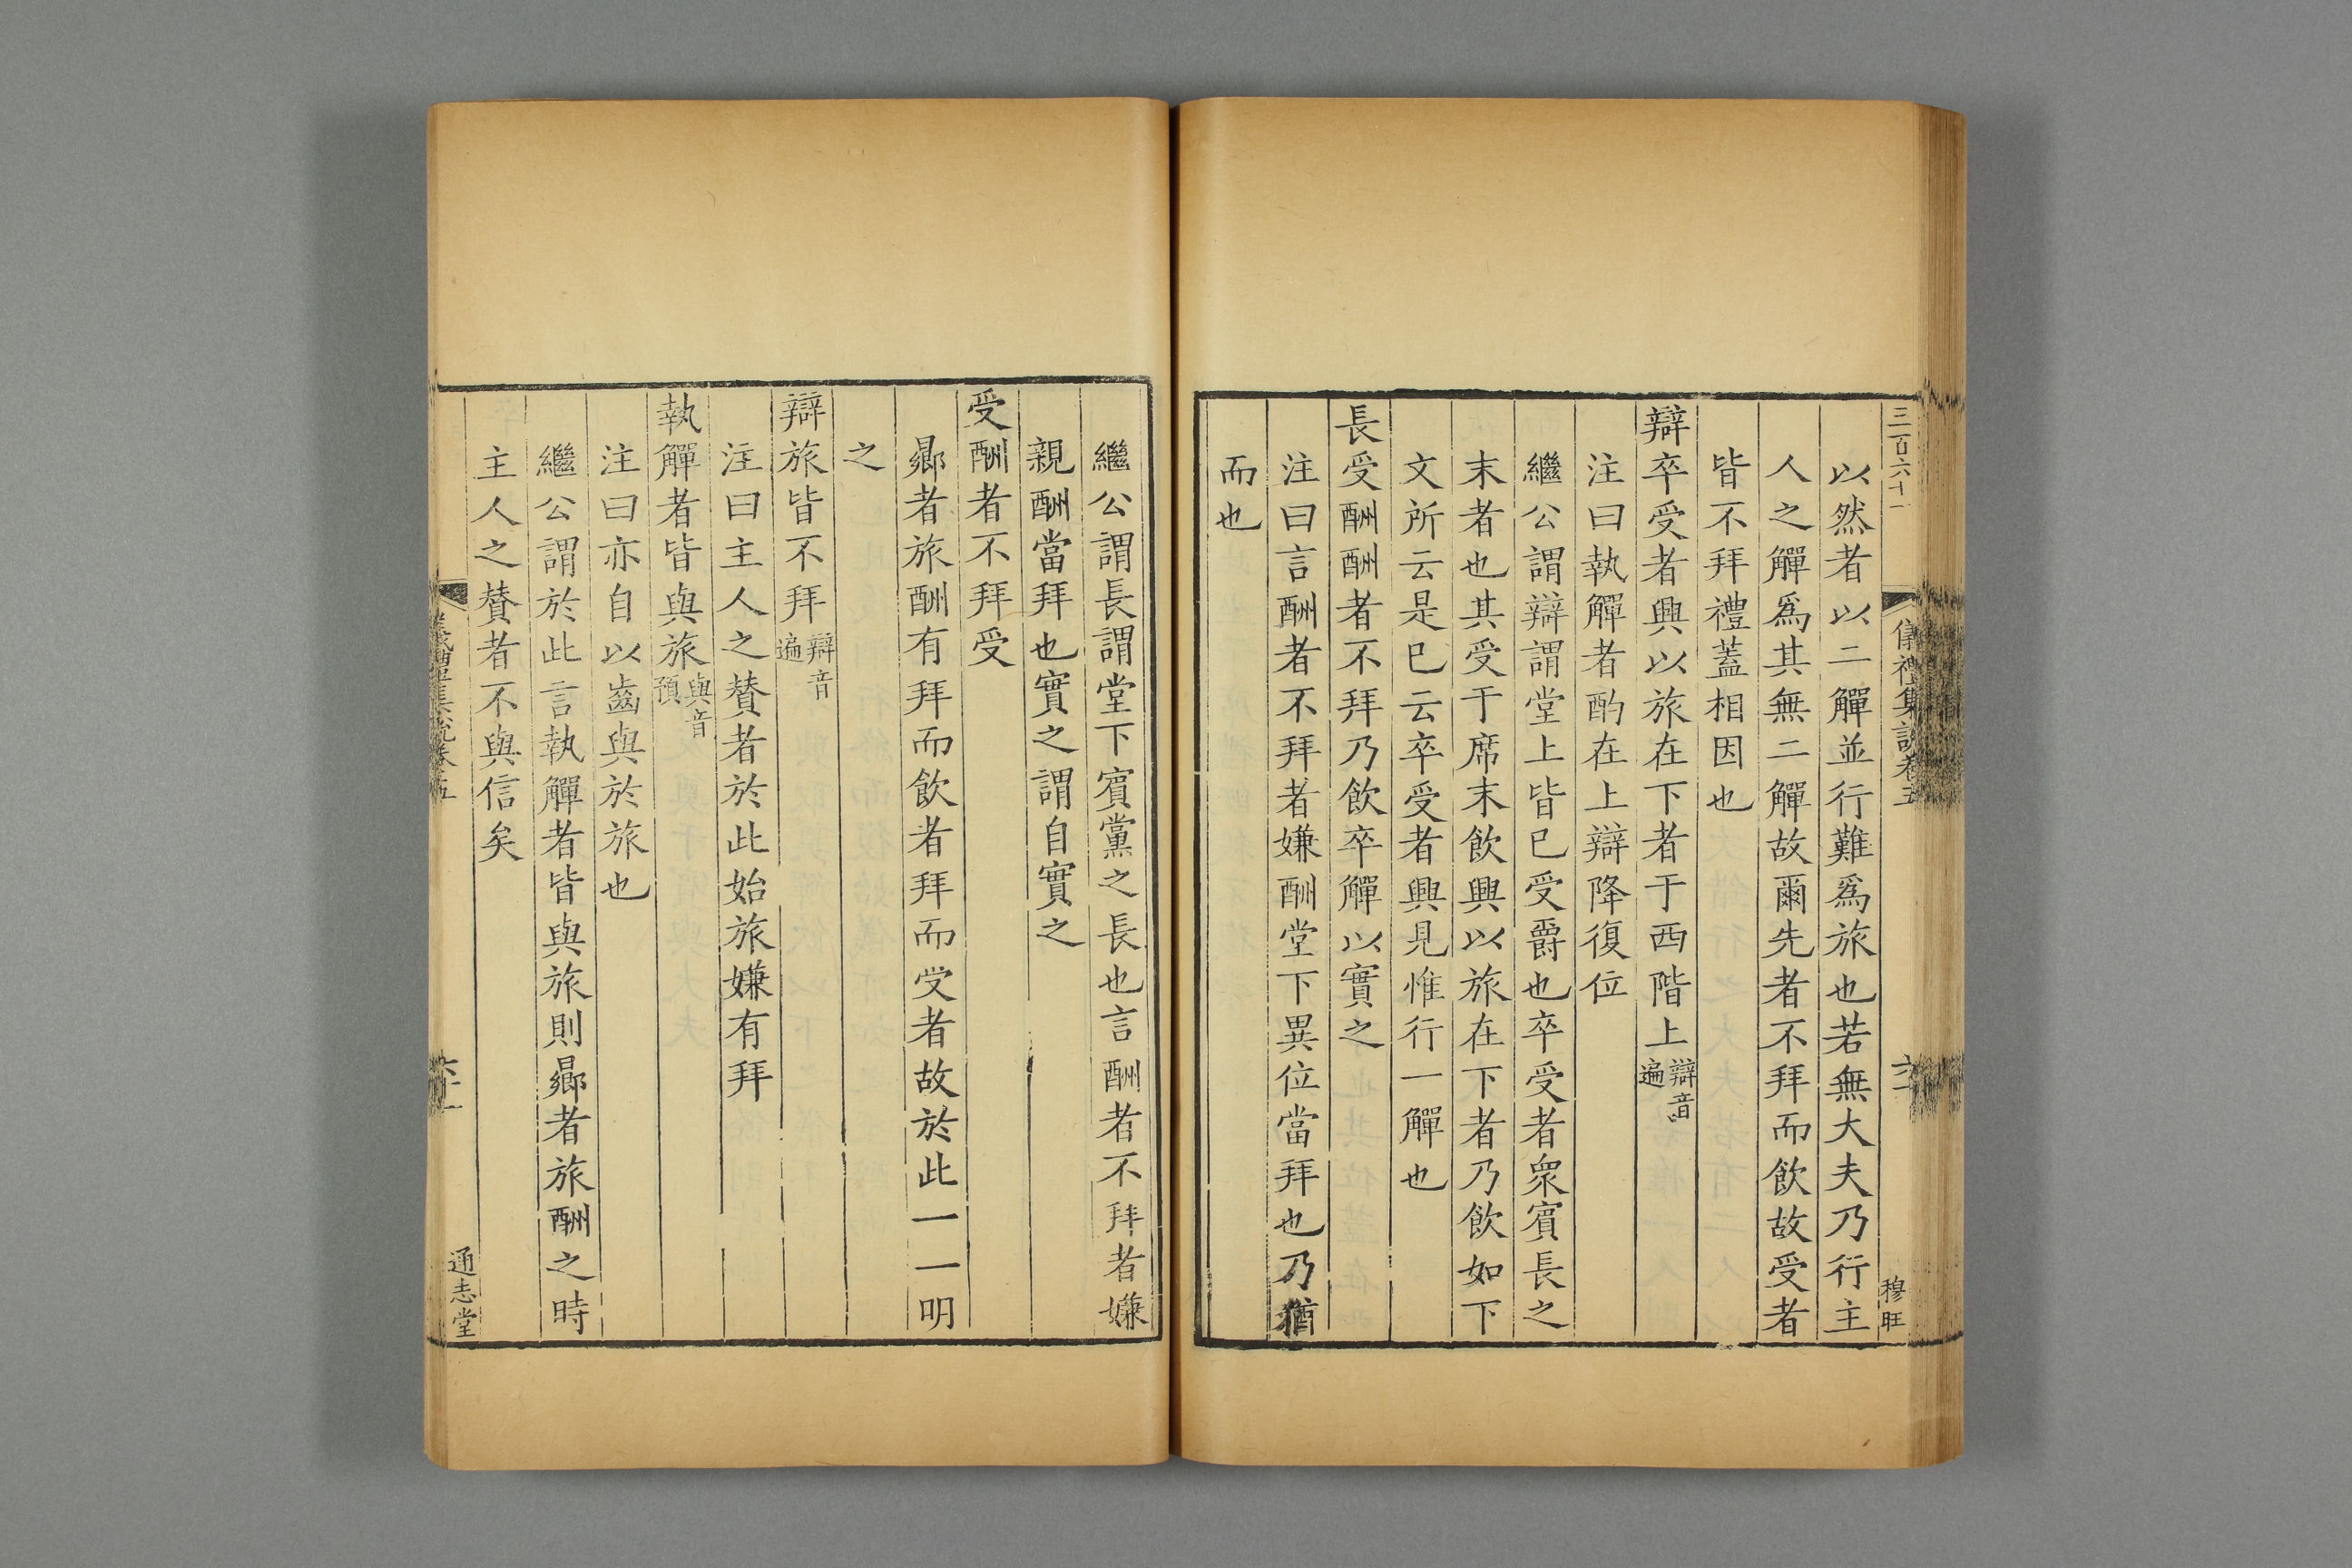 三百六十一
儀禮集說卷五
穆旺
以然者以二觶並行難爲旅也若無大夫乃行主
人之觶爲其無二觶故爾先者不拜而飲故受者
皆不拜禮蓋相因也
辯卒受者興以旅在下者于西階上辯音遍
注曰執觶者酌在上辯降復位
繼公謂辯謂堂上皆已受爵也卒受者衆賓長之
末者也其受于席末飲興以旅在下者乃飲如下
文所云是已云卒受者興見惟行一觶也
長受酬酬者不拜乃飲卒觶以實之
注曰言酬者不拜者嫌酬堂下異位當拜也乃猶
而也
繼公謂長謂堂下賓黨之長也言酬者不拜者嫌
親酬當拜也實之謂自實之
受酬者不拜受
曏者旅酬有拜而飲者拜而受者故於此一一明
之
辯旅皆不拜辯音遍
注曰主人之贊者於此始旅嫌有拜
執觶者皆與旅與音預
注曰亦自以齒與於旅也
繼公謂於此言執觶者皆與旅則曏者旅酬之時
主人之贊者不與信矣
儀禮集說卷五
六十一
通志堂